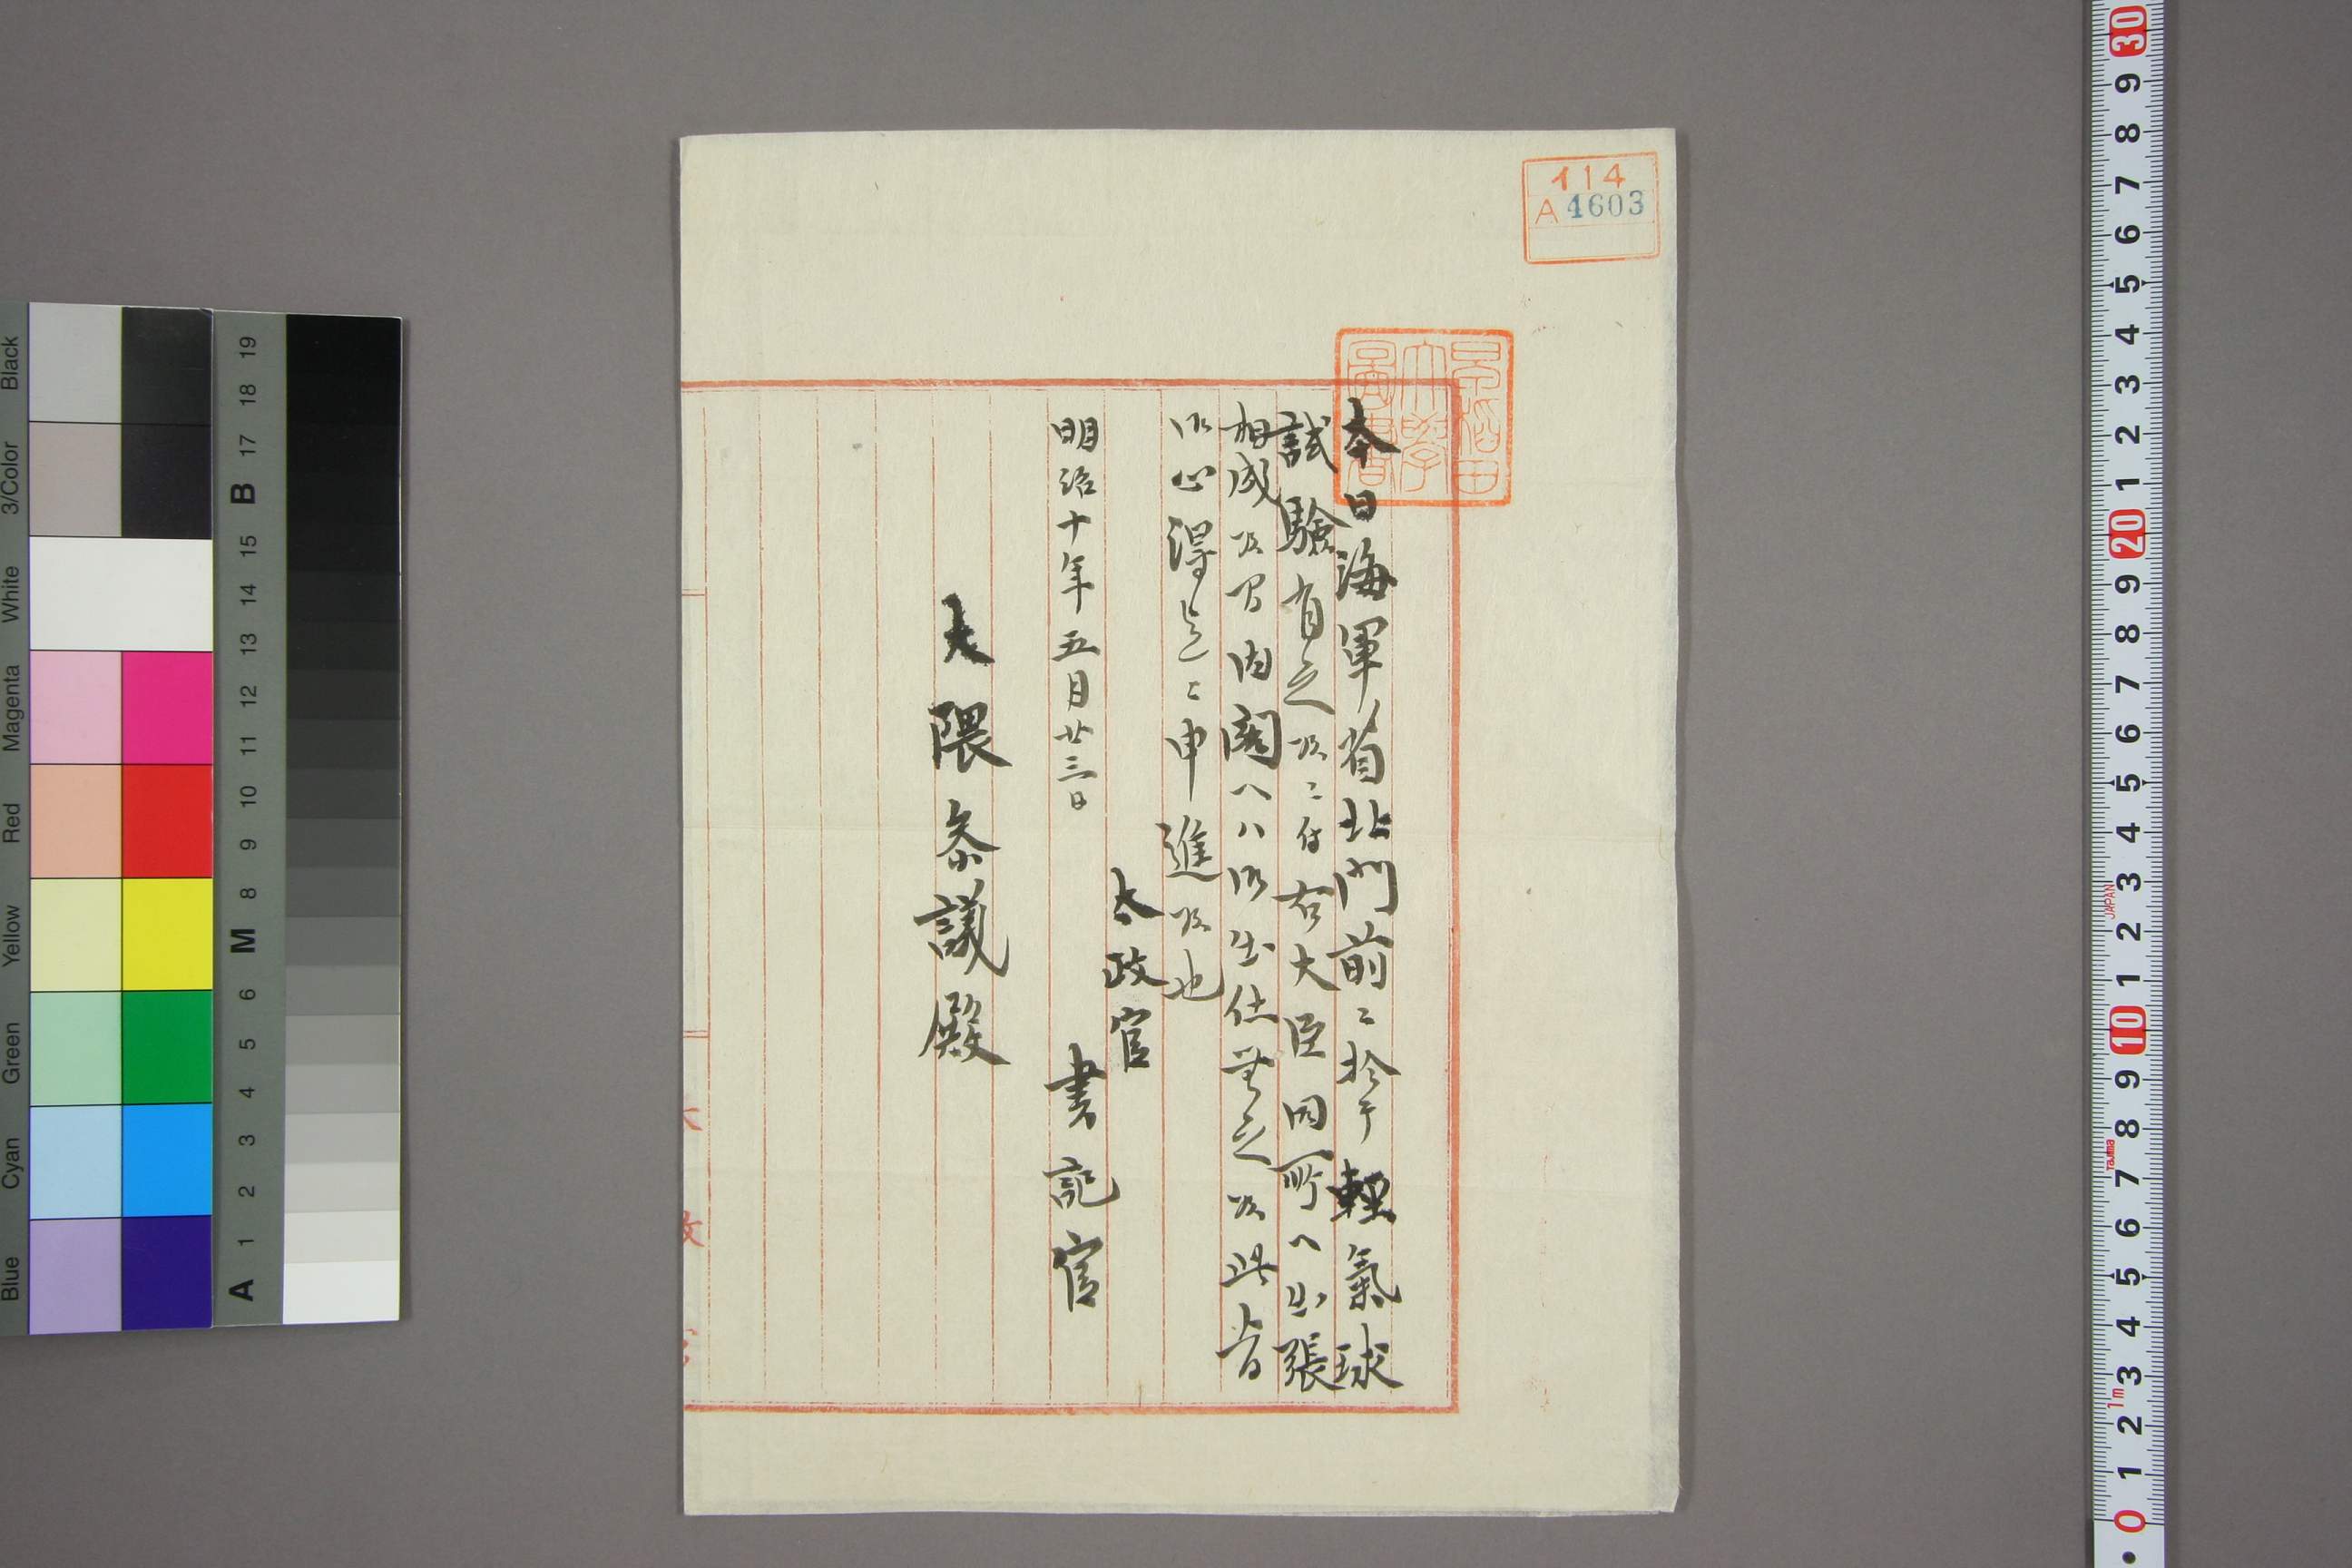 114
A 4603
早稲田
大學
圖書
本日海軍省北門前ニ於テ輕氣球
試驗有之候ニ付右大臣同所ヘ出張
相成候間内閣ヘハ御出仕無之候此旨
御心得迄ニ申進候也
太政官
書記官
明治十年五月廿三日
大隈参議殿
Blue Cyan Green Yellow Red Magenta White 3/Color Black
A 1 2 3 4 5 6 M 8 9 10 11 12 13 14 15 B 17 18 19
0 1 2 3 4 5 6 7 8 9 10 1 2 3 4 5 6 7 8 9 20 1 2 3 4 5 6 7 8 9 30
1m Tajima JAPAN